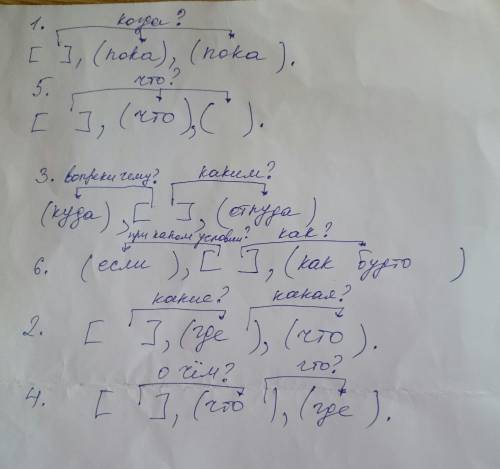 1. когда?
[ ], (пока), (пока).
5. что?
[ ], (что), ( ).
3. вопреки чему? каким?
(куда), [ ], (откуда)
при каком условии? как?
6. (если ), [ ], (как будто )
какие? какая?
2. [ ], (где ), (что ).
о чём? что?
4. [ ], (что ), (где ).